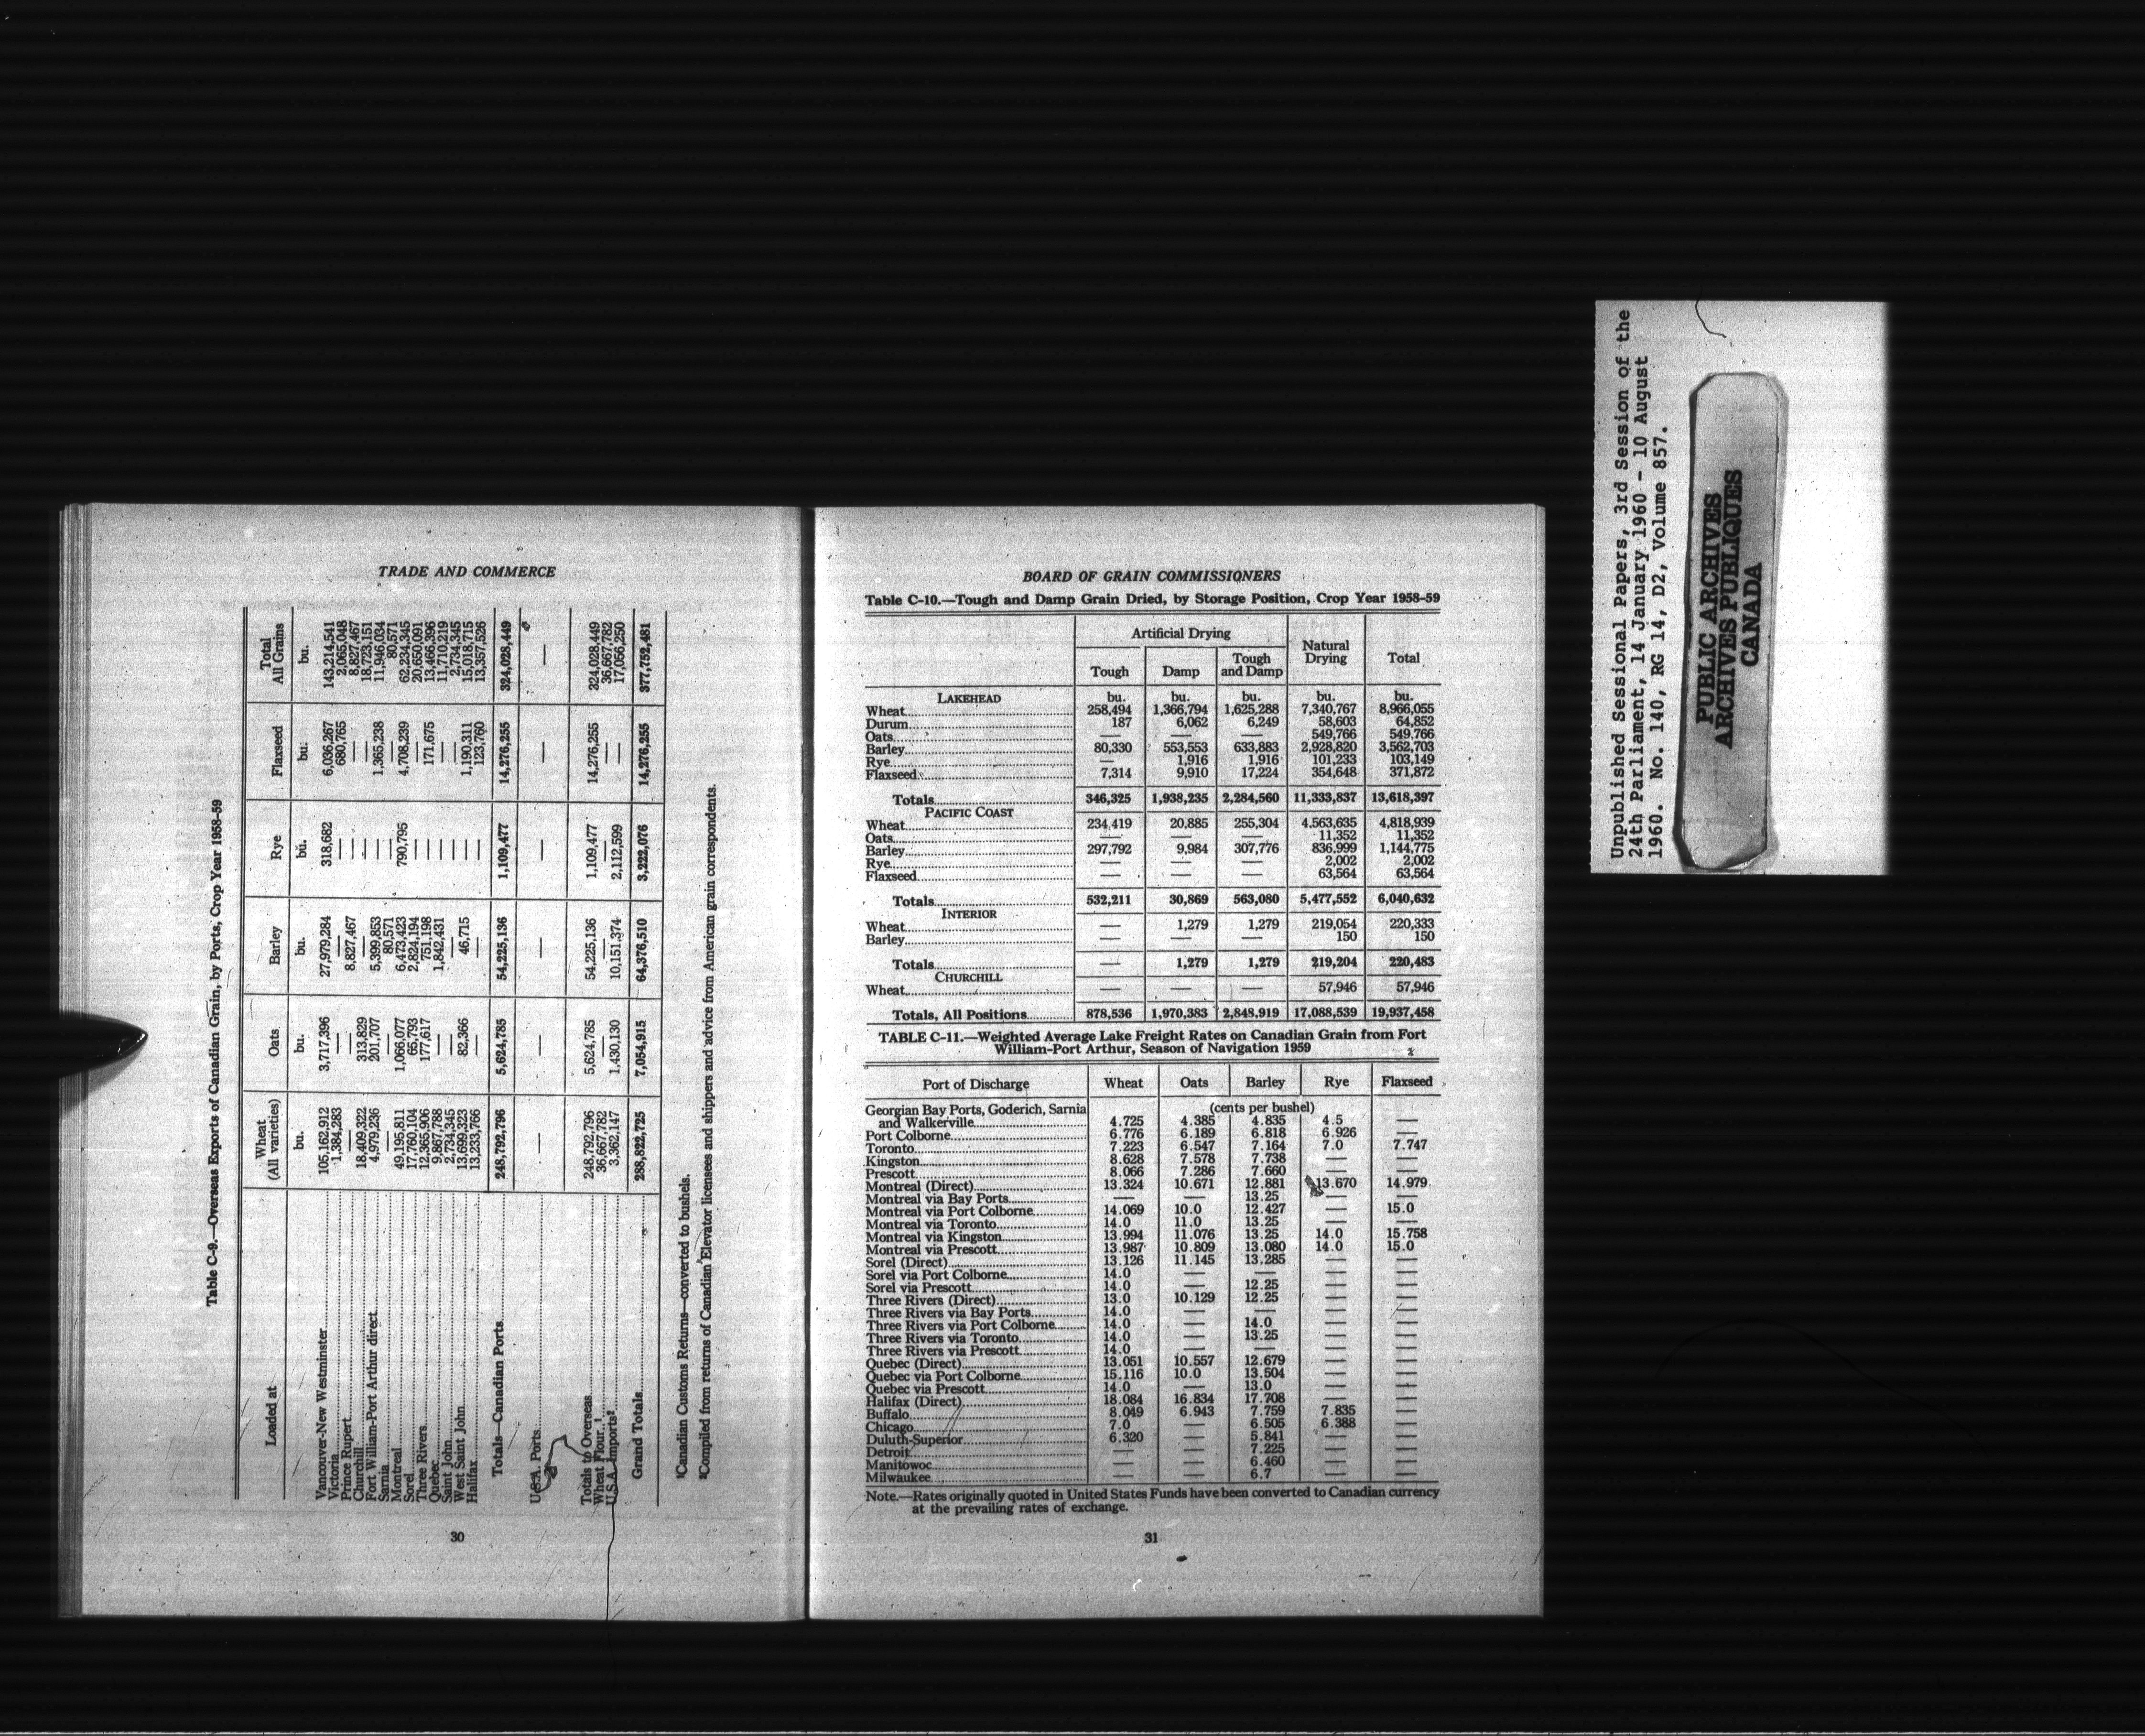 TRADE AND COMMERCE
Table C-9.—Overseas Exports of Canadian Grain, by Ports, Crop Year 1958-59
Loaded at Wheat (All varieties) Oats Barley Rye Flaxseed Total All Grains
bu. bu. bu. bu. bu. bu.
Vancouver-New Westminster 105,162,912 3,717,396 27,979,284 318,682 6,036,267 143,214,541
Victoria 1,384,283 — — — 680,765 2,065,048
Prince Rupert — — 8,827,467 — — 8,827,467
Churchill 18,409,322 313,829 — — — 18,723,151
Fort William-Port Arthur direct 4,979,236 201,707 5,399,853 — 1,365,238 11,946,034
Sarnia — — 80,571 — — 80,571
Montreal 49,195,811 1,066,077 6,473,423 790,795 4,708,239 62,234,345
Sorel 17,760,104 65,793 2,824,194 — — 20,650,091
Three Rivers 12,365,906 177,617 751,198 — 171,675 13,466,396
Quebec 9,867,788 — 1,842,431 — — 11,710,219
Saint John 2,734,345 — — — — 2,734,345
West Saint John 13,699,323 82,366 46,715 — 1,190,311 15,018,715
Halifax 13,233,766 — — — 123,760 13,357,526
Totals—Canadian Ports 248,792,796 5,624,785 54,225,136 1,109,477 14,276,255 324,028,449
U.S.A. Ports — — — — — —
Totals to Overseas 248,792,796 5,624,785 54,225,136 1,109,477 14,276,255 324,028,449
Wheat Flour¹ 36,667,782 — — — — 36,667,782
U.S.A. Imports² 3,362,147 1,430,130 10,151,374 2,112,599 — 17,056,250
Grand Totals 288,822,725 7,054,915 64,376,510 3,222,076 14,276,255 377,752,481
¹Canadian Customs Returns—converted to bushels.
²Compiled from returns of Canadian Elevator licensees and shippers and advice from American grain correspondents.
30
BOARD OF GRAIN COMMISSIONERS
Table C-10.—Tough and Damp Grain Dried, by Storage Position, Crop Year 1958-59
Artificial Drying
Tough Damp Tough and Damp Natural Drying Total
LAKEHEAD bu. bu. bu. bu. bu.
Wheat 258,494 1,366,794 1,625,288 7,340,767 8,966,055
Durum 187 6,062 6,249 58,603 64,852
Oats — — — 549,766 549,766
Barley 80,330 553,553 633,883 2,928,820 3,562,703
Rye — 1,916 1,916 101,233 103,149
Flaxseed 7,314 9,910 17,224 354,648 371,872
Totals 346,325 1,938,235 2,284,560 11,333,837 13,618,397
PACIFIC COAST
Wheat 234,419 20,885 255,304 4,563,635 4,818,939
Oats — — — 11,352 11,352
Barley 297,792 9,984 307,776 836,999 1,144,775
Rye — — — 2,002 2,002
Flaxseed — — — 63,564 63,564
Totals 532,211 30,869 563,080 5,477,552 6,040,632
INTERIOR
Wheat — 1,279 1,279 219,054 220,333
Barley — — — 150 150
Totals — 1,279 1,279 219,204 220,483
CHURCHILL
Wheat — — — 57,946 57,946
Totals, All Positions 878,536 1,970,383 2,848,919 17,088,539 19,937,458
TABLE C-11.—Weighted Average Lake Freight Rates on Canadian Grain from Fort
William-Port Arthur, Season of Navigation 1959
Port of Discharge Wheat Oats Barley Rye Flaxseed
Georgian Bay Ports, Goderich, Sarnia (cents per bushel)
and Walkerville 4.725 4.385 4.835 4.5 —
Port Colborne 6.776 6.189 6.818 6.926 —
Toronto 7.223 6.547 7.164 7.0 7.747
Kingston 8.628 7.578 7.738 — —
Prescott 8.066 7.286 7.660 — —
Montreal (Direct) 13.324 10.671 12.881 13.670 14.979
Montreal via Bay Ports — — 13.25 — —
Montreal via Port Colborne 14.069 10.0 12.427 — 15.0
Montreal via Toronto 14.0 11.0 13.25 — —
Montreal via Kingston 13.994 11.076 13.25 14.0 15.758
Montreal via Prescott 13.987 10.809 13.080 14.0 15.0
Sorel (Direct) 13.126 11.145 13.285 — —
Sorel via Port Colborne 14.0 — — — —
Sorel via Prescott 14.0 — 12.25 — —
Three Rivers (Direct) 13.0 10.129 12.25 — —
Three Rivers via Bay Ports 14.0 — — — —
Three Rivers via Port Colborne 14.0 — 14.0 — —
Three Rivers via Toronto 14.0 — 13.25 — —
Three Rivers via Prescott 14.0 — — — —
Quebec (Direct) 13.051 10.557 12.679 — —
Quebec via Port Colborne 15.116 10.0 13.504 — —
Quebec via Prescott 14.0 — 13.0 — —
Halifax (Direct) 18.084 16.834 17.708 — —
Buffalo 8.049 6.943 7.759 7.835 —
Chicago 7.0 — 6.505 6.388 —
Duluth-Superior 6.320 — 5.841 — —
Detroit — — 7.225 — —
Manitowoc — — 6.460 — —
Milwaukee — — 6.7 — —
Note.—Rates originally quoted in United States Funds have been converted to Canadian currency
at the prevailing rates of exchange.
31
Unpublished Sessional Papers, 3rd Session of the
24th Parliament, 14 January 1960 - 10 August
1960. No. 140, RG 14, D2, Volume 857.
PUBLIC ARCHIVES
ARCHIVES PUBLIQUES
CANADA